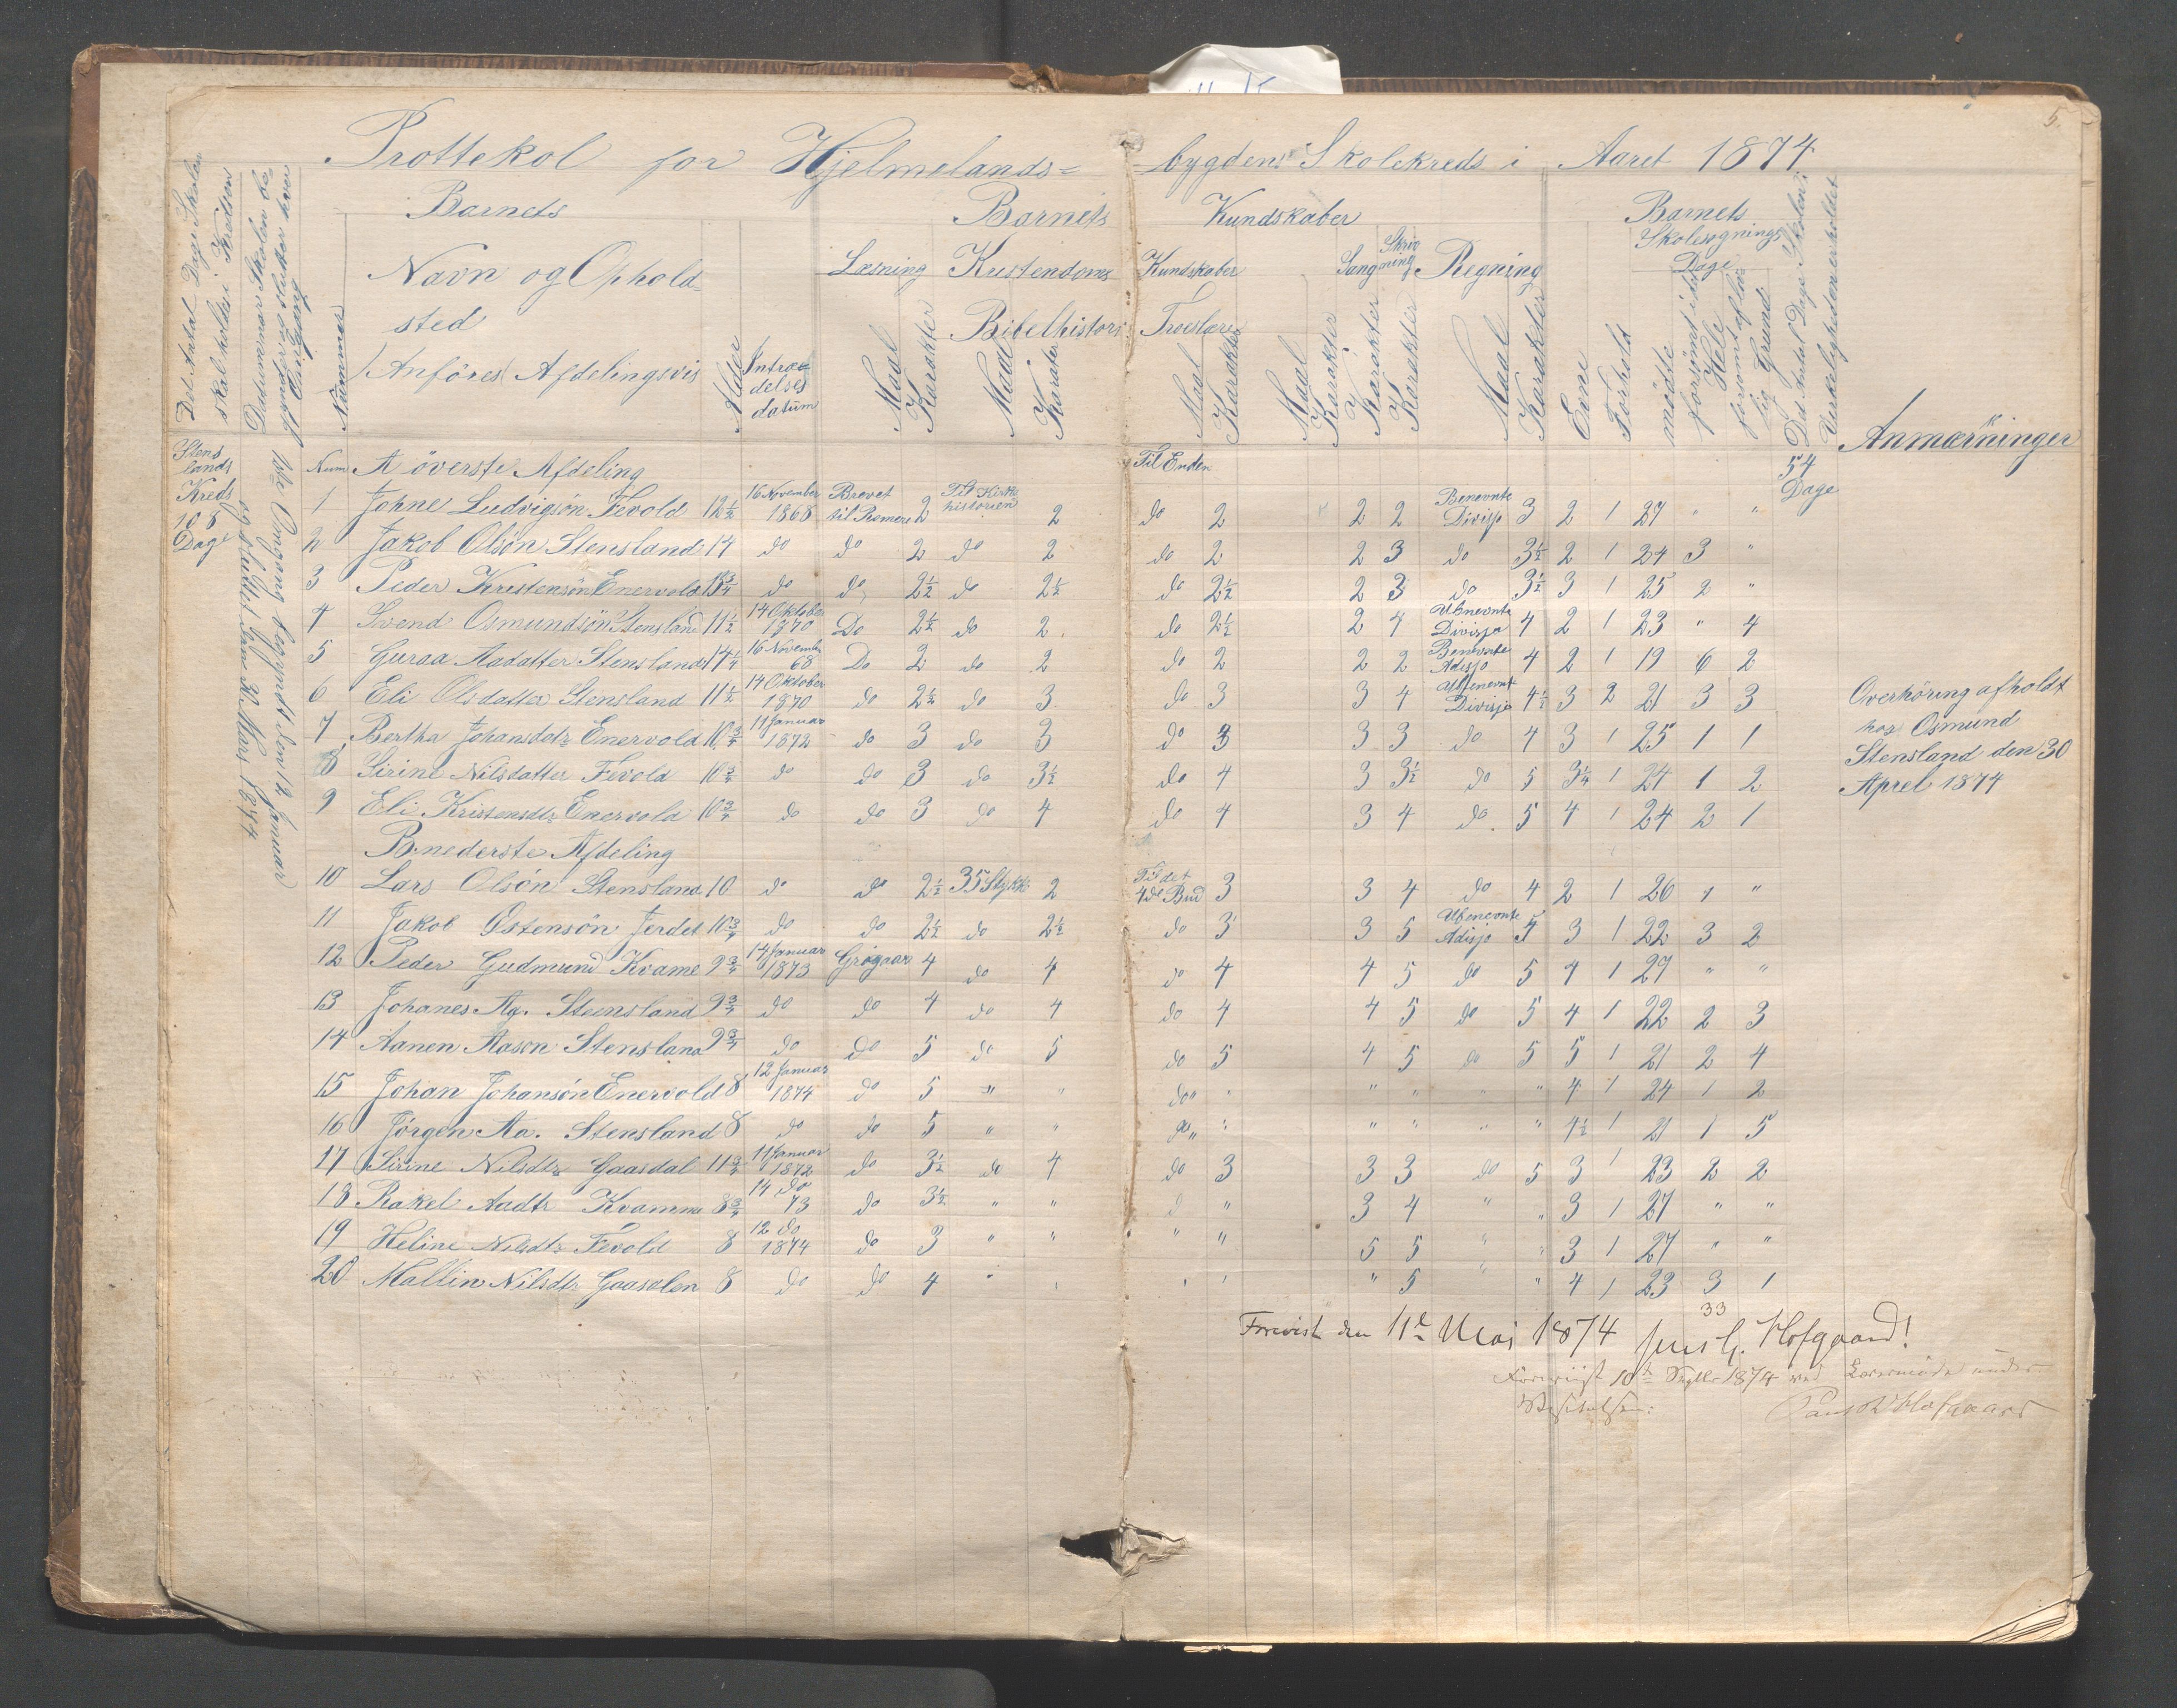 5.
Prottekol for Hjelmelands= bygdens Skolekreds i Aaret 1874.
Det Antal Dage Skolen skal holdes i Kredsen
Datummer Skolen begynder og slutter hver Omgang
Nummer
Barnets
Navn og Ophold=
sted
(Anföres Afdelingsvis
Alder
Intræ=
delses
datum
Barnets Kundskaber
Læsning
Maal
Karakter
Kristendoms Kundskaber
Bibelhistori:
Maal
Karakter
Troeslære
Maal
Karakter
Maal
Karakter
Sang
Karakter
Skriv
ning
Karakter
Regning
Maal
Karakter
Evne
Forhold
Barnets
Skolesøgnings
Dage
mödte
forsömt i det Hele
forsömt af lovlig Grund
Det Antal Dage Skolen i Virkeligheden er holdt
Anmærkninger
Stens
lands
Kreds
108
Dage
1ste Omgang begynt den 12 Januar
og sluttet den Mars 1874
Num A överste Afdeling Til Enden 54 Dage
1 Johne Ludvigsön Fevold 12½ 16 November 1868 Brevet til Romere 2 Til Kirke historien 2 do 2 2 2 Benevnte Divisjo 3 2 1 27 " "
2 Jakob Olsön Stensland 14 do do 2 do 2 do 2 2 3 do 3½ 2 1 24 3 "
3 Peder Kristensön Enervold 13¾ do do 2½ do 2½ do 2½ 2 3 do 3½ 3 1 25 2 "
4 Svend Osmundsön Stensland 11½ 14 Oktober 1870 Do 2½ do 2 do 2½ 2 4 Ubnevnte Divisjo 4 2 1 23 " 4
5 Guraa Aadatter Stensland 14¼ 16 November 68 Do 2 do 2 do 2 2 2 Benevnte Adisjo 4 2 1 19 6 2
6 Eli Olsdatter Stensland 11½ 14 Oktober 1870 do 2½ do 3 do 3 3 4 Ubenevnt Divisjo 4½ 3 2 21 3 3
7 Bertha Johansdatr Enervold 10¾ 11 Januar 1872 do 3 do 3 do 3 3 3 do 4 3 1 25 1 1
8 Sirine Nilsdatter Fevold 10¾ do do 3 do 3½ do 4 3 3½ do 5 3¼ 1 24 1 2
9 Eli Kristensdtr Enervold 10¾ do do 3 do 4 do 4 3 4 do 5 4 1 24 2 1
Overhöring afholdt
hos Osmund
Stensland den 30
Aprel 1874
B. nederste Afdeling
10 Lars Olsön Stensland 10 do do 2½ 35 Stykk 2 Til det 4de Bud 3 3 4 do 4 2 1 26 1 "
11 Jakob Østensön Jerdet 10¾ do do 2½ do 2½ do 3 3 5 Ubenevnte Adisjo 5 3 1 22 3 2
12 Peder Gudmund Kvame 9¾ 14 Januar 1873 Grøgaar 4 do 4 do 4 4 5 do 5 4 1 27 " "
13 Johanes Ag. Stensland 9¾ do do 4 do 4 do 4 4 5 do 5 4 1 22 2 3
14 Aanen Aasön Stensland 9¾ do do 5 do 5 do 5 4 5 do 5 5 1 21 2 4
15 Johan Johansön Enervold 8 12 Januar 1874 do 5 " " do " " " " " " 4 1 24 1 2
16 Jörgen Aa. Stensland 8 do do 5 " " do " " " " " 4½ 1 21 1 5
17 Sirine Nilsdtr Gaasdal 11¾ 11 Januar 1872 do 3½ do 4 do 3 3 3 do 5 3 1 23 2 2
18 Rakel Aadtr Kvamme 8¾ 14 do 73 do 3½ " " " 3 4 " " 3 1 27 " "
19 Heline Nilsdtr Fevold 8 12 do 1874 do 3 " " " " 5 5 " " 3 1 27 " "
20 Mallin Nilsdtr Gaasdlen 8 do do 4 " " " " " 5 " " 4 1 23 3 1
33
Forevist den 11te Mai 1874 Jens G. Hofgaard!
1874 ved Lærermöde under
Hofgaard